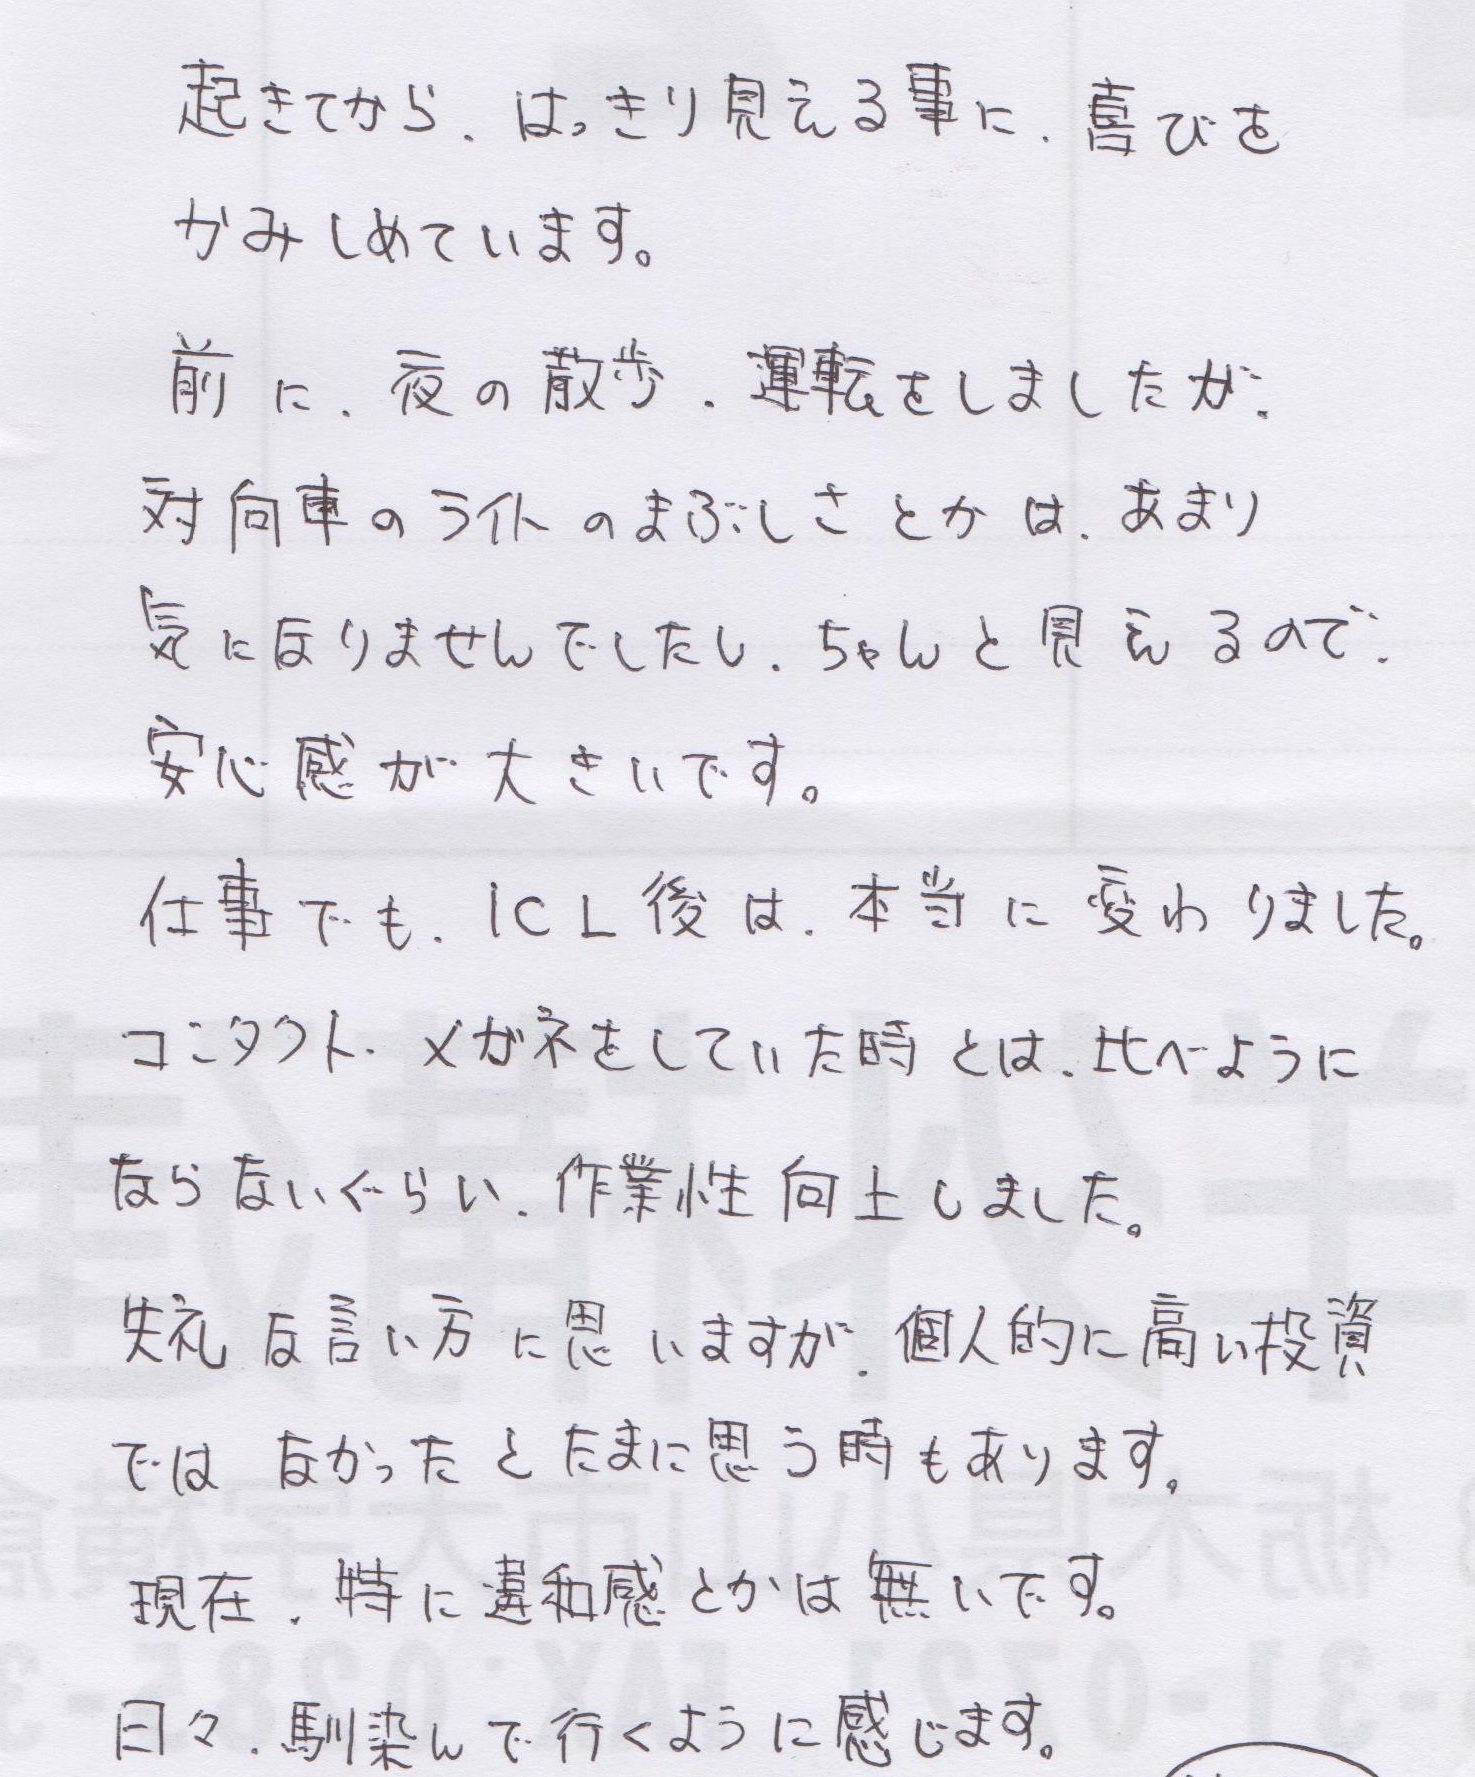 起きてから、はっきり見える事に、喜びを
かみしめています。
前に、夜の散歩、運転をしましたが、
対向車のライトのまぶしさとかは、あまり
気になりませんでしたし、ちゃんと見えるので、
安心感が大きいです。
仕事でも、ICL後は、本当に変わりました。
コンタクト・メガネをしていた時とは、比べように
ならないぐらい、作業性向上しました。
失礼な言い方に思いますが、個人的に高い投資
ではなかったとたまに思う時もあります。
現在、特に違和感とかは無いです。
日々、馴染んで行くように感じます。
栃木県小山市大字横倉
31-0721 FAX:0285-3